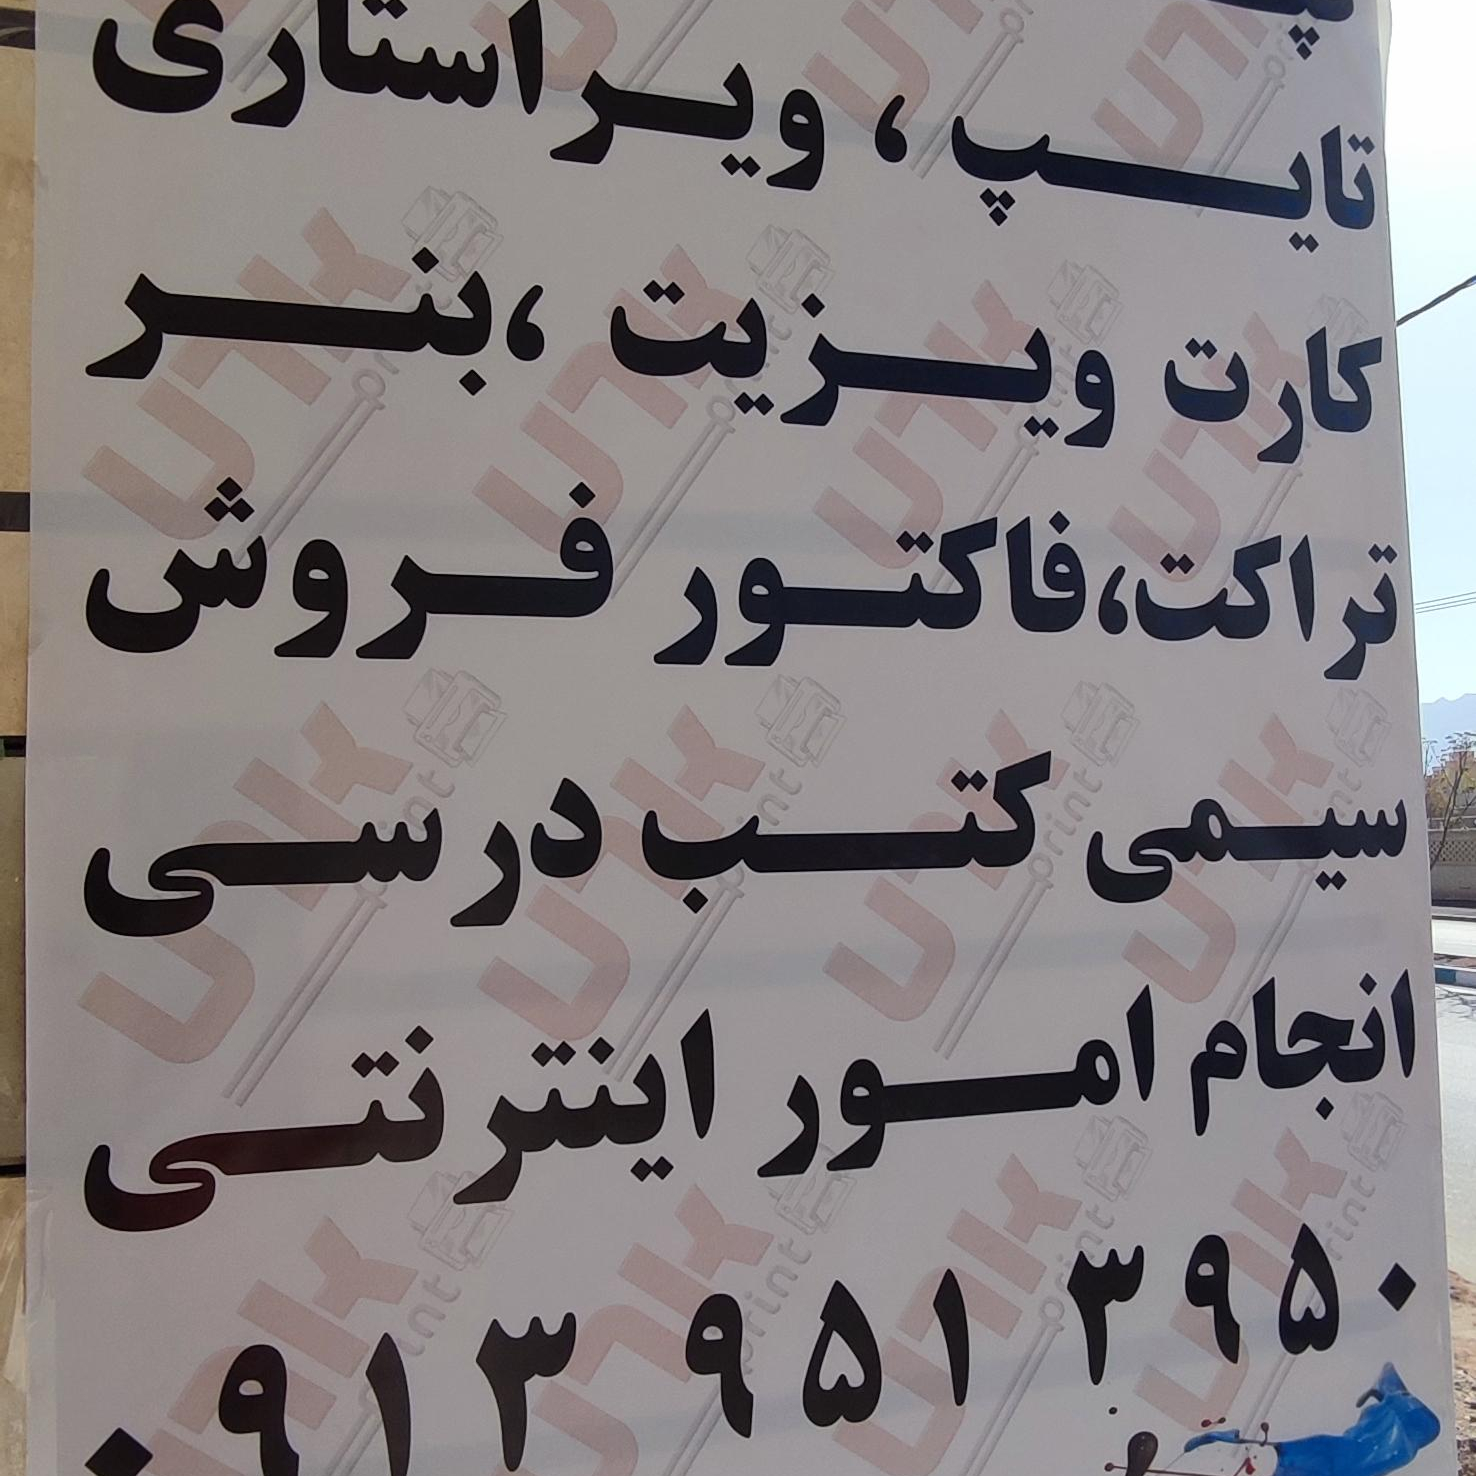 تایپ ، ویراستاری
کارت ویزیت ،بنر
تراکت،فاکتور فروش
سیمی کتب درسی
انجام امور اینترنتی
۰۹۱۳ ۹۵۱ ۳۹۵۰